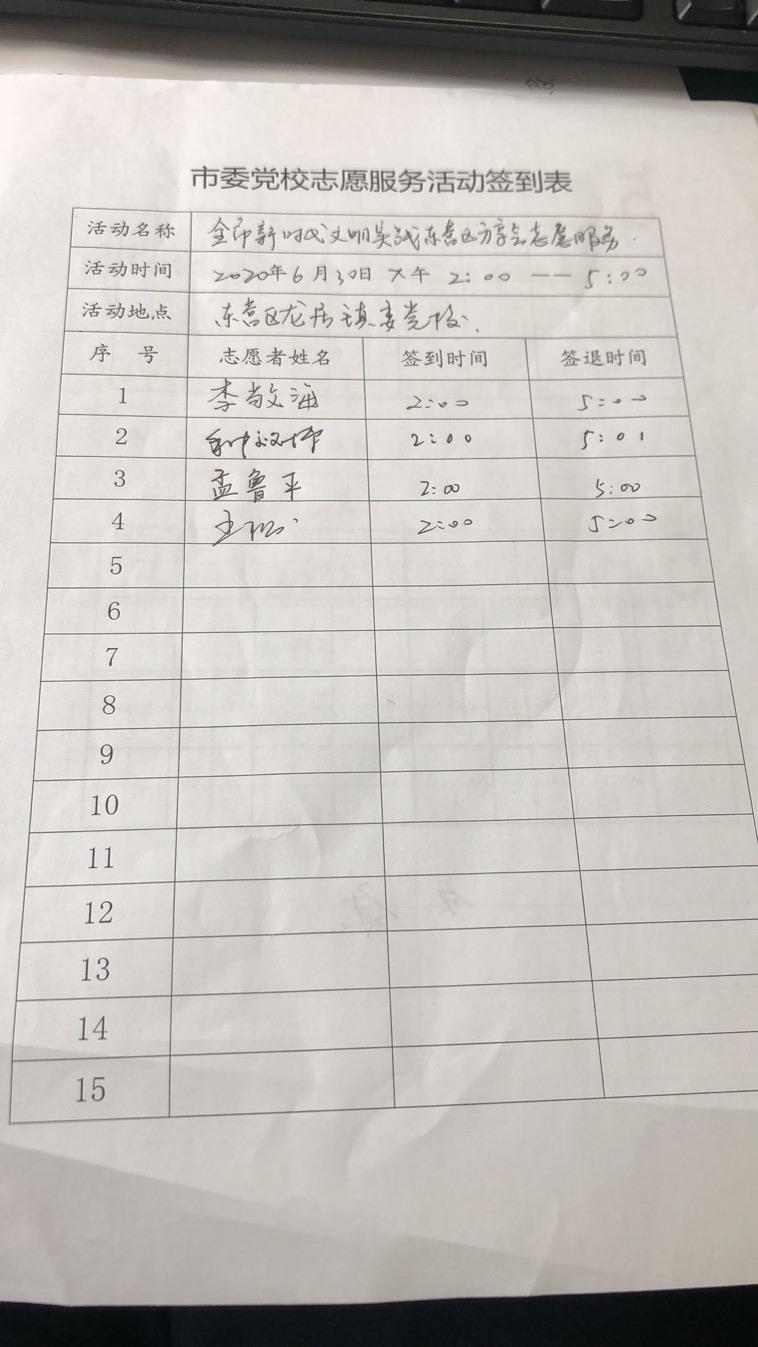 市委党校志愿服务活动签到表
活动名称 全市新时代文明实践东营区分享会志愿服务.
活动时间 2020年6月30日 下午 2:00 — 5:00
活动地点 东营区龙居镇委党校.
序 号 志愿者姓名 签到时间 签退时间
1 李敬海 2:00 5:00
2 2:00 5:01
3 孟鲁平 2:00 5:00
4 2:00 5:00
5
6
7
8
9
10
11
12
13
14
15